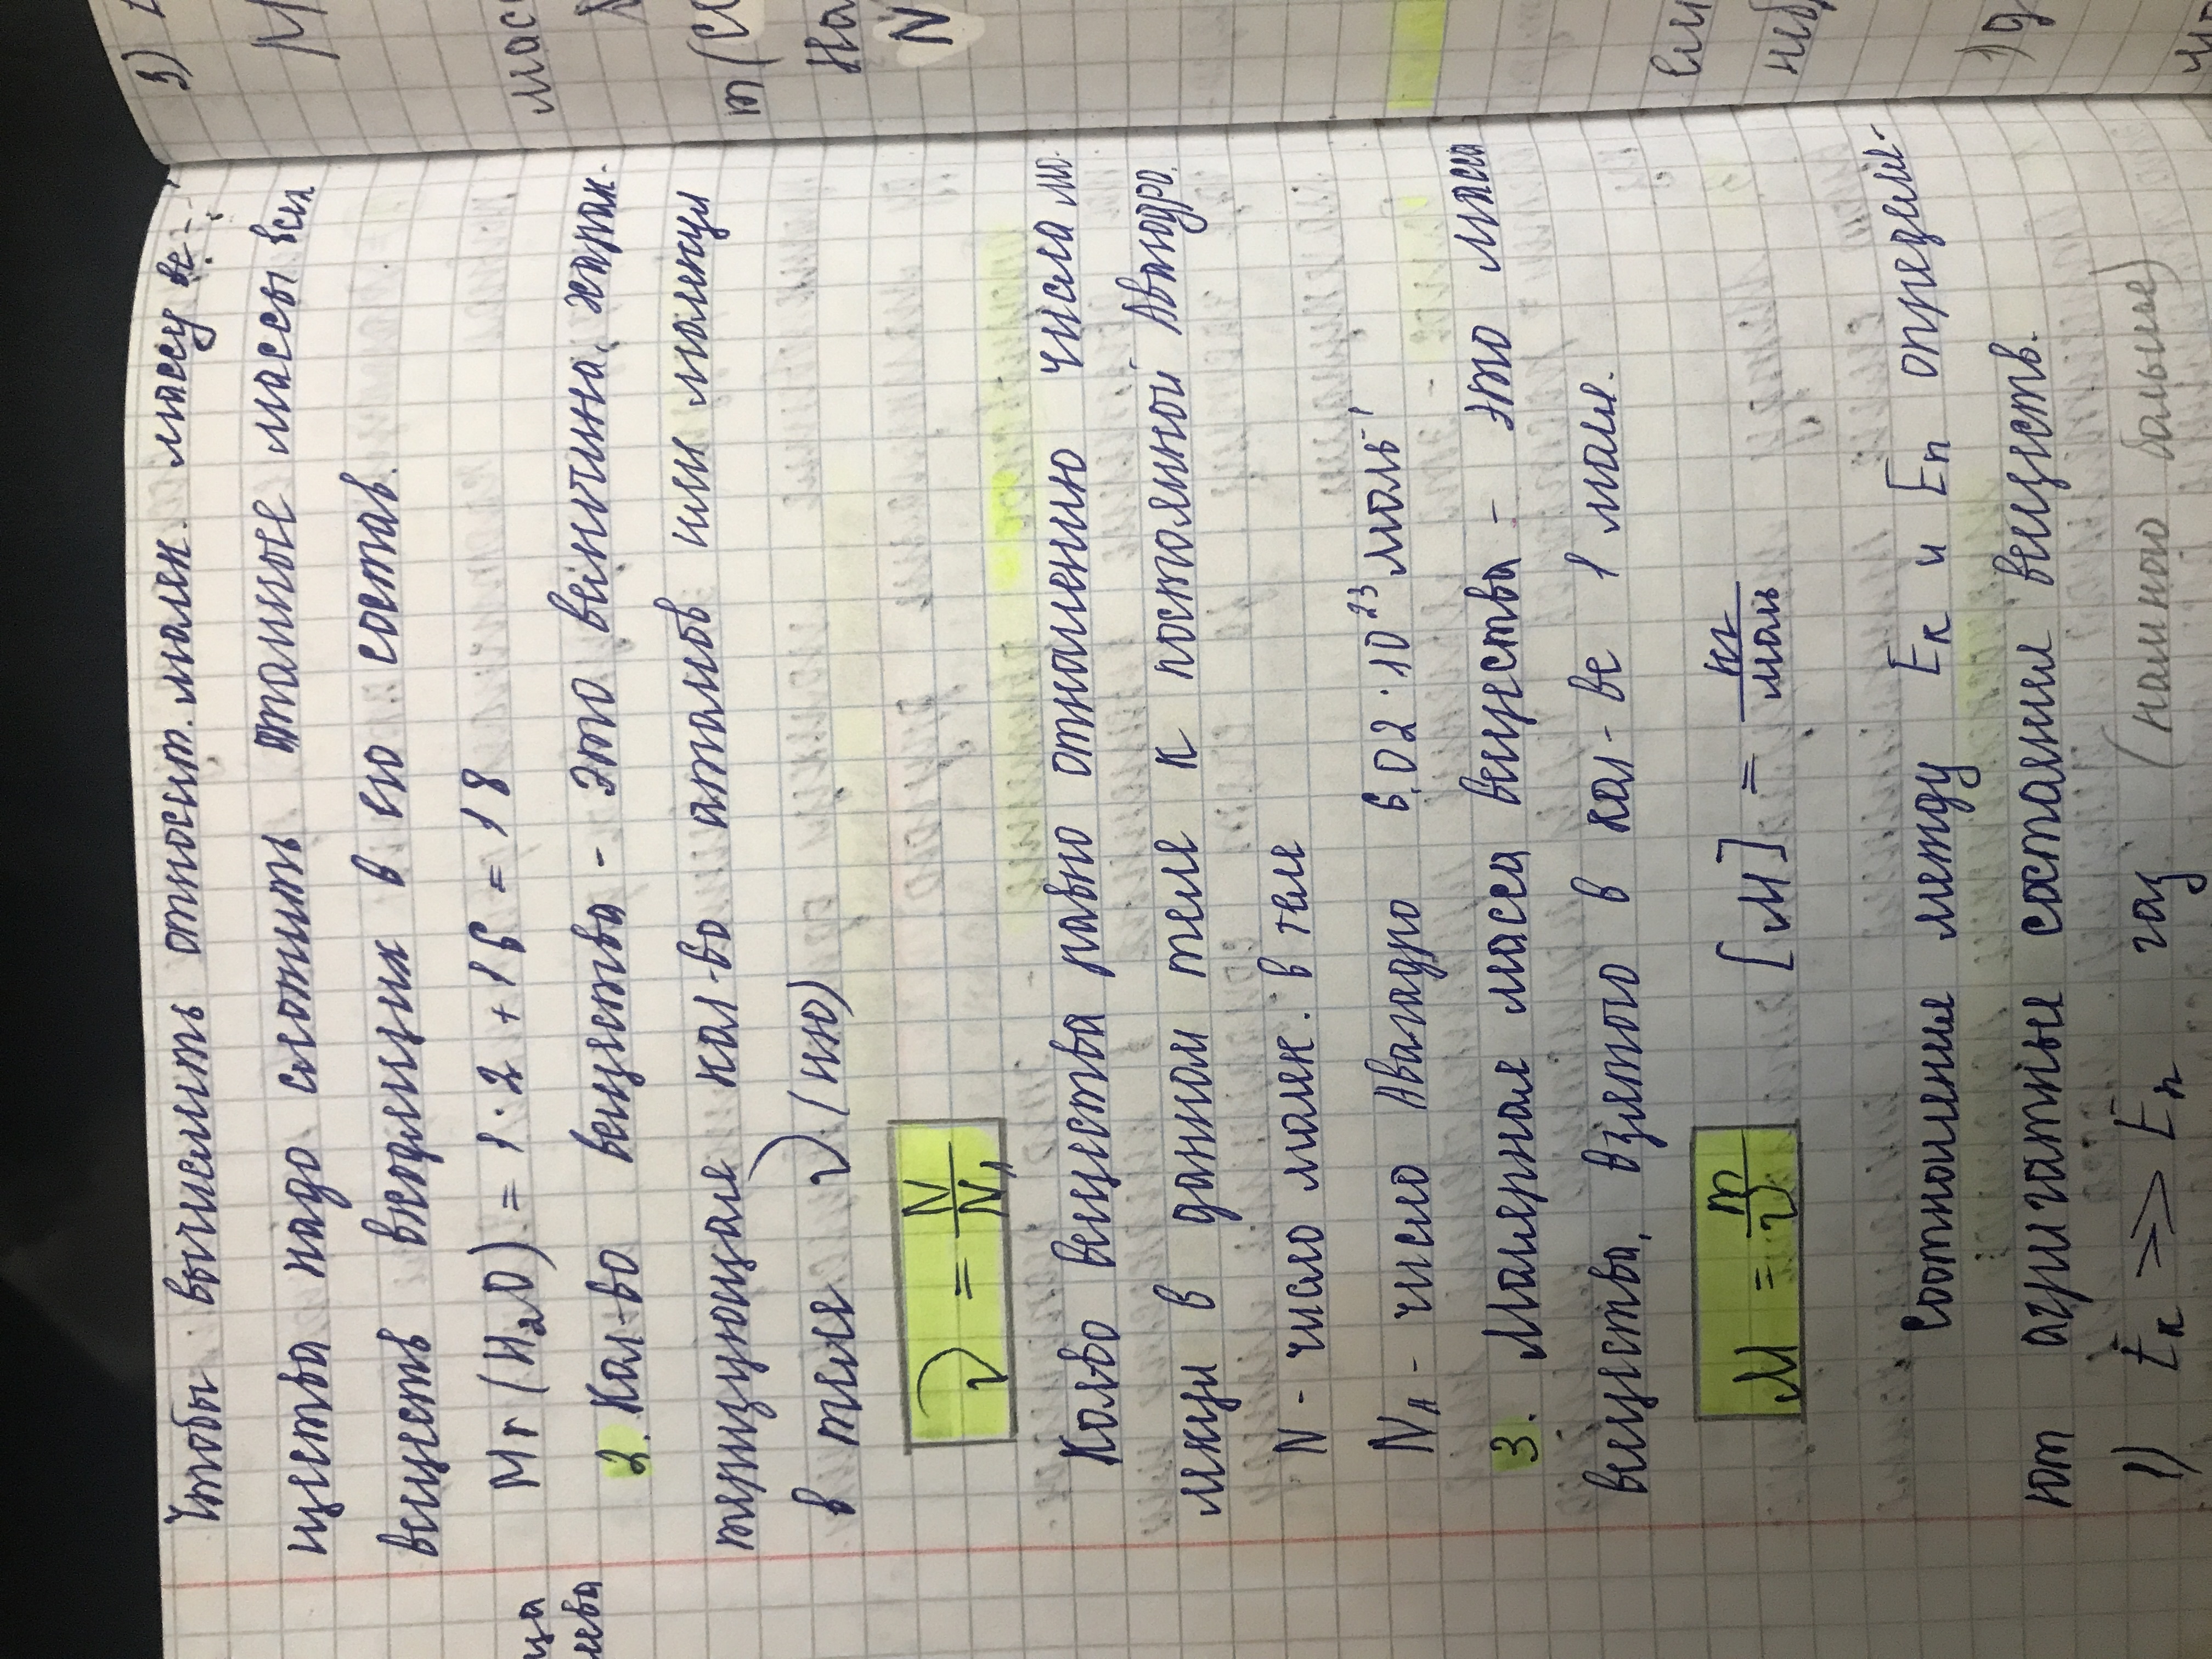 Чтобы вычислить относит. молек. массу ве-
щества надо сложить атомные массы всех
веществ входящих в его состав.
Mr (H₂O) = 1·2 + 16 = 18
2. Кол-во вещества - это величина, харак-
теризующая кол-во атомов или молекул
в теле ν (ню)
ν = N/Nₐ
Кол-во вещества равно отношению числа мо-
лекул в данном теле к постоянной Авогадро.
N - число молек. в теле
Nₐ - число Авогадро 6,02·10²³ моль⁻¹
3. Молярная масса вещества - это масса
вещества, взятого в кол-ве 1 моль.
M = m/ν [M] = кг/моль
Соотношение между Eк и Eп определя-
ют агрегатные состояния веществ.
1) Eк >> Eп газ (намного больше)
ца
лева
3)
М
мас
m(
На
N
1)